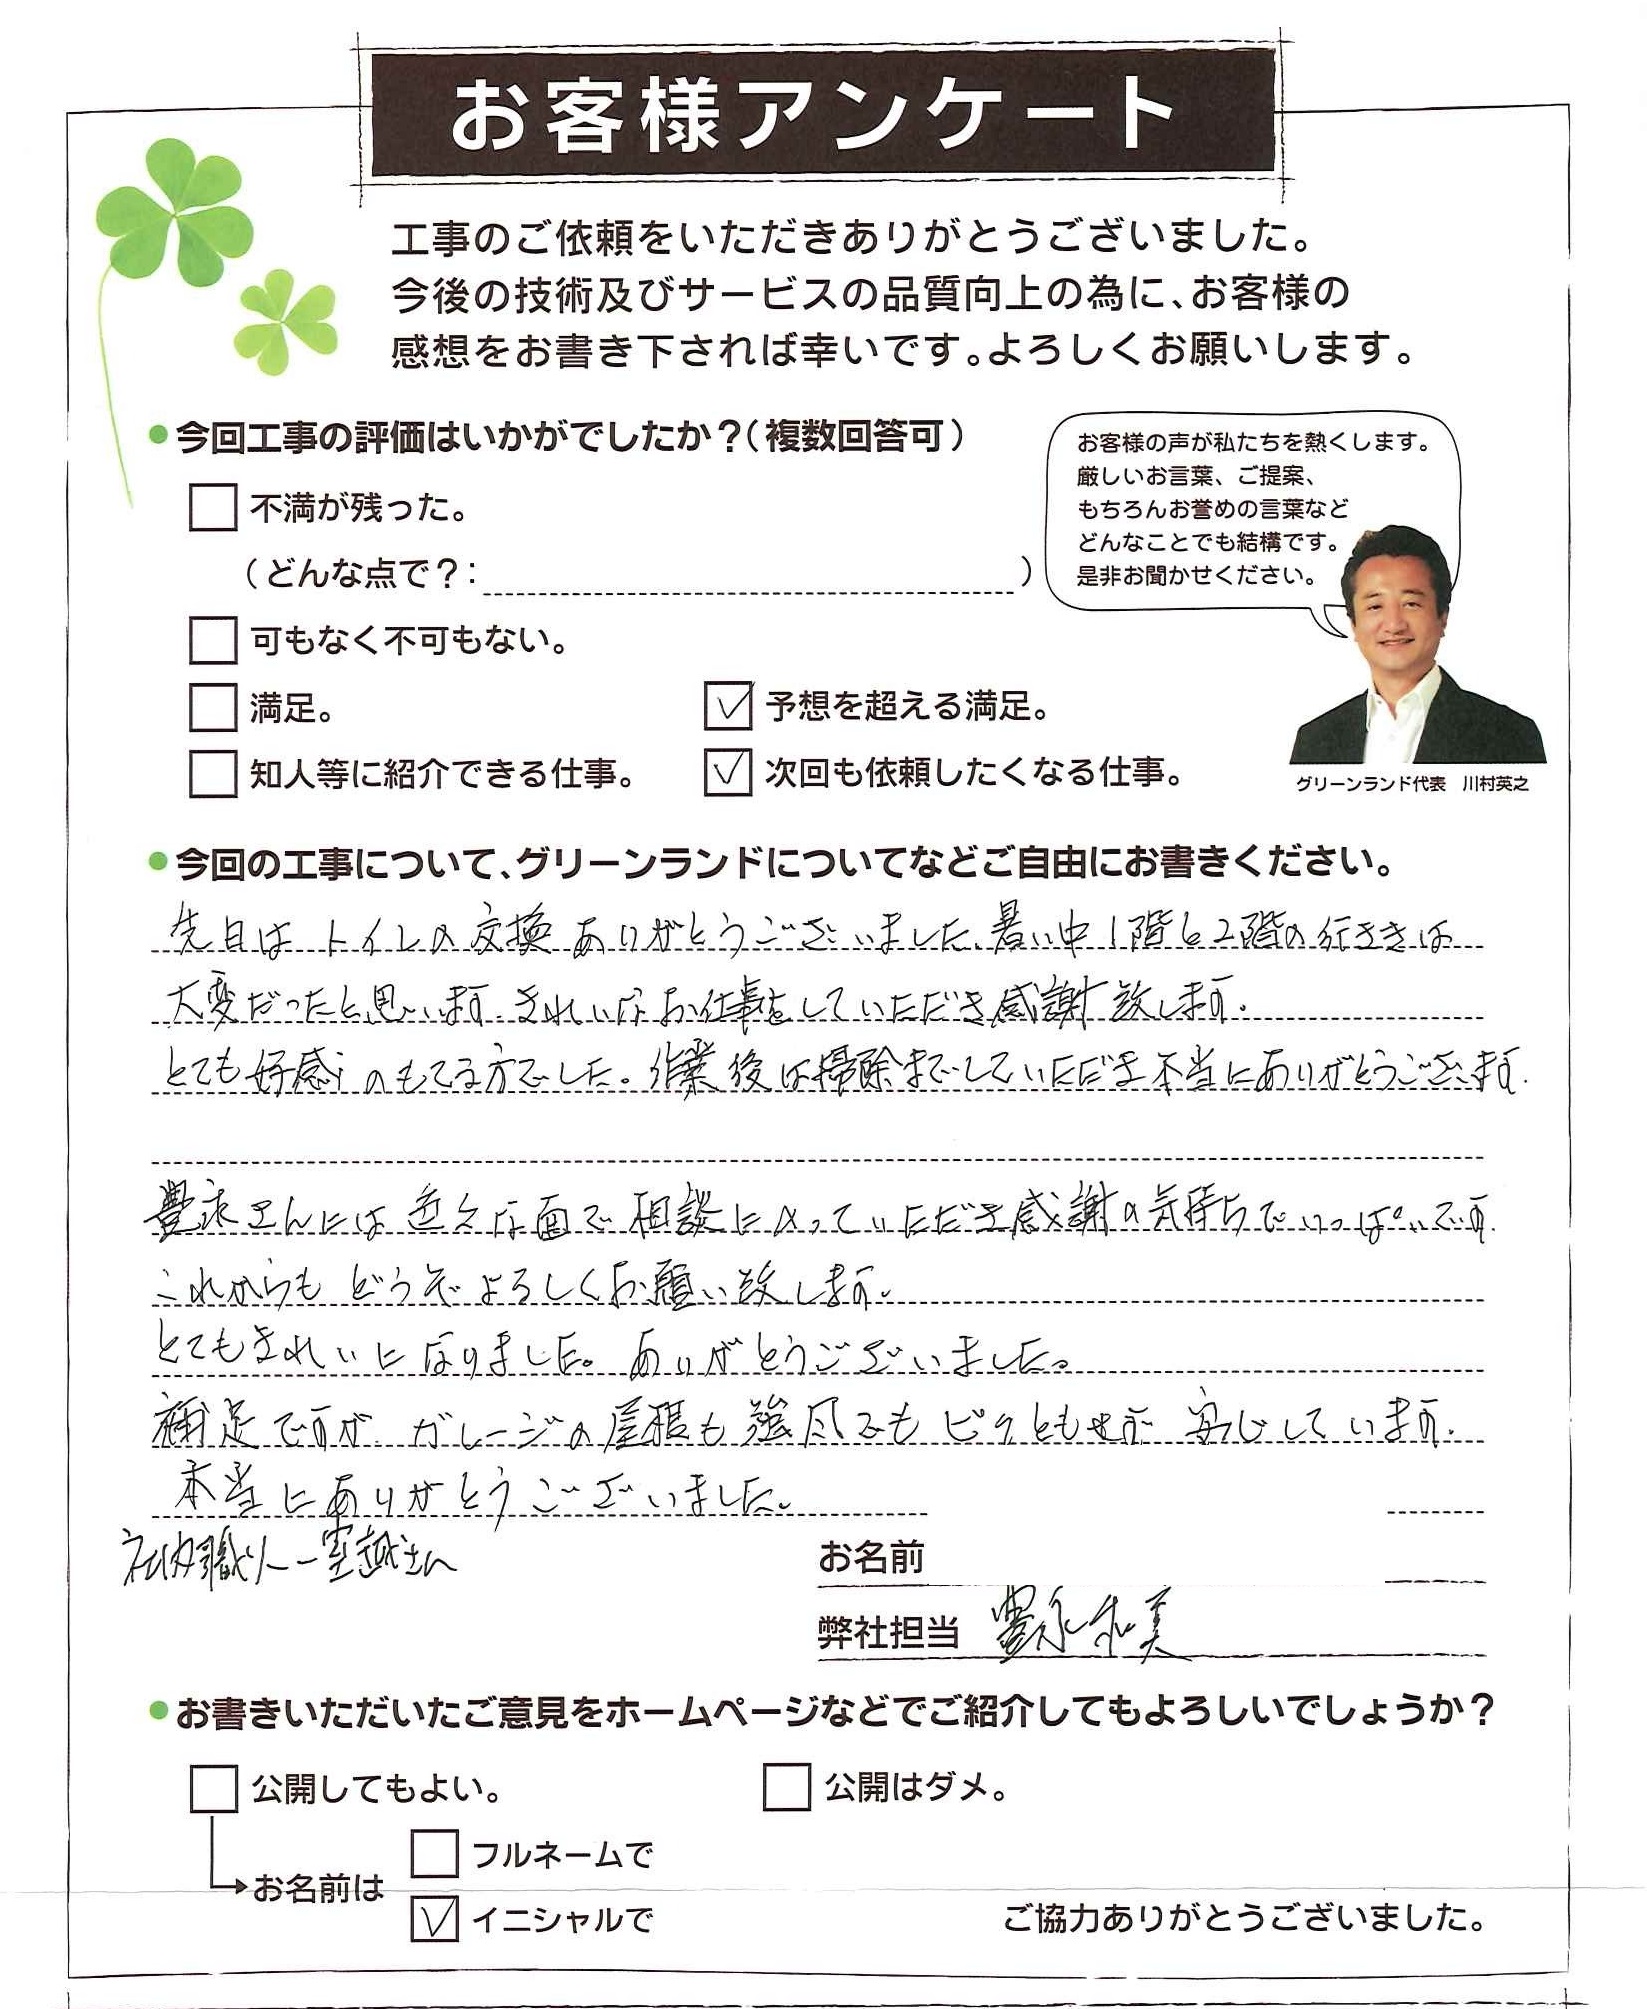 お客様アンケート
工事のご依頼をいただきありがとうございました。
今後の技術及びサービスの品質向上の為に、お客様の
感想をお書き下されば幸いです。よろしくお願いします。
●今回工事の評価はいかがでしたか？（複数回答可）
不満が残った。
（どんな点で？：　）
可もなく不可もない。
満足。
予想を超える満足。
知人等に紹介できる仕事。
次回も依頼したくなる仕事。
お客様の声が私たちを熱くします。
厳しいお言葉、ご提案、
もちろんお誉めの言葉など
どんなことでも結構です。
是非お聞かせください。
グリーンランド代表　川村英之
●今回の工事について、グリーンランドについてなどご自由にお書きください。
先日はトイレの交換ありがとうございました。暑い中1階と2階の行ききは
大変だったと思います。きれいなお仕事をしていただき感謝致します。
とても好感のもてる方でした。作業後は掃除までしていただき本当にありがとうございます。
豊永さんには色々な面で相談にのっていただき感謝の気持ちでいっぱいです。
これからもどうぞよろしくお願い致します。
とてもきれいになりました。ありがとうございました。
補足ですが ガレージの屋根も強風でもビクともせず 安心しています。
本当にありがとうございました。
社内職人ー室越さん
お名前
弊社担当 豊永和美
●お書きいただいたご意見をホームページなどでご紹介してもよろしいでしょうか？
公開してもよい。
公開はダメ。
お名前は
フルネームで
イニシャルで
ご協力ありがとうございました。